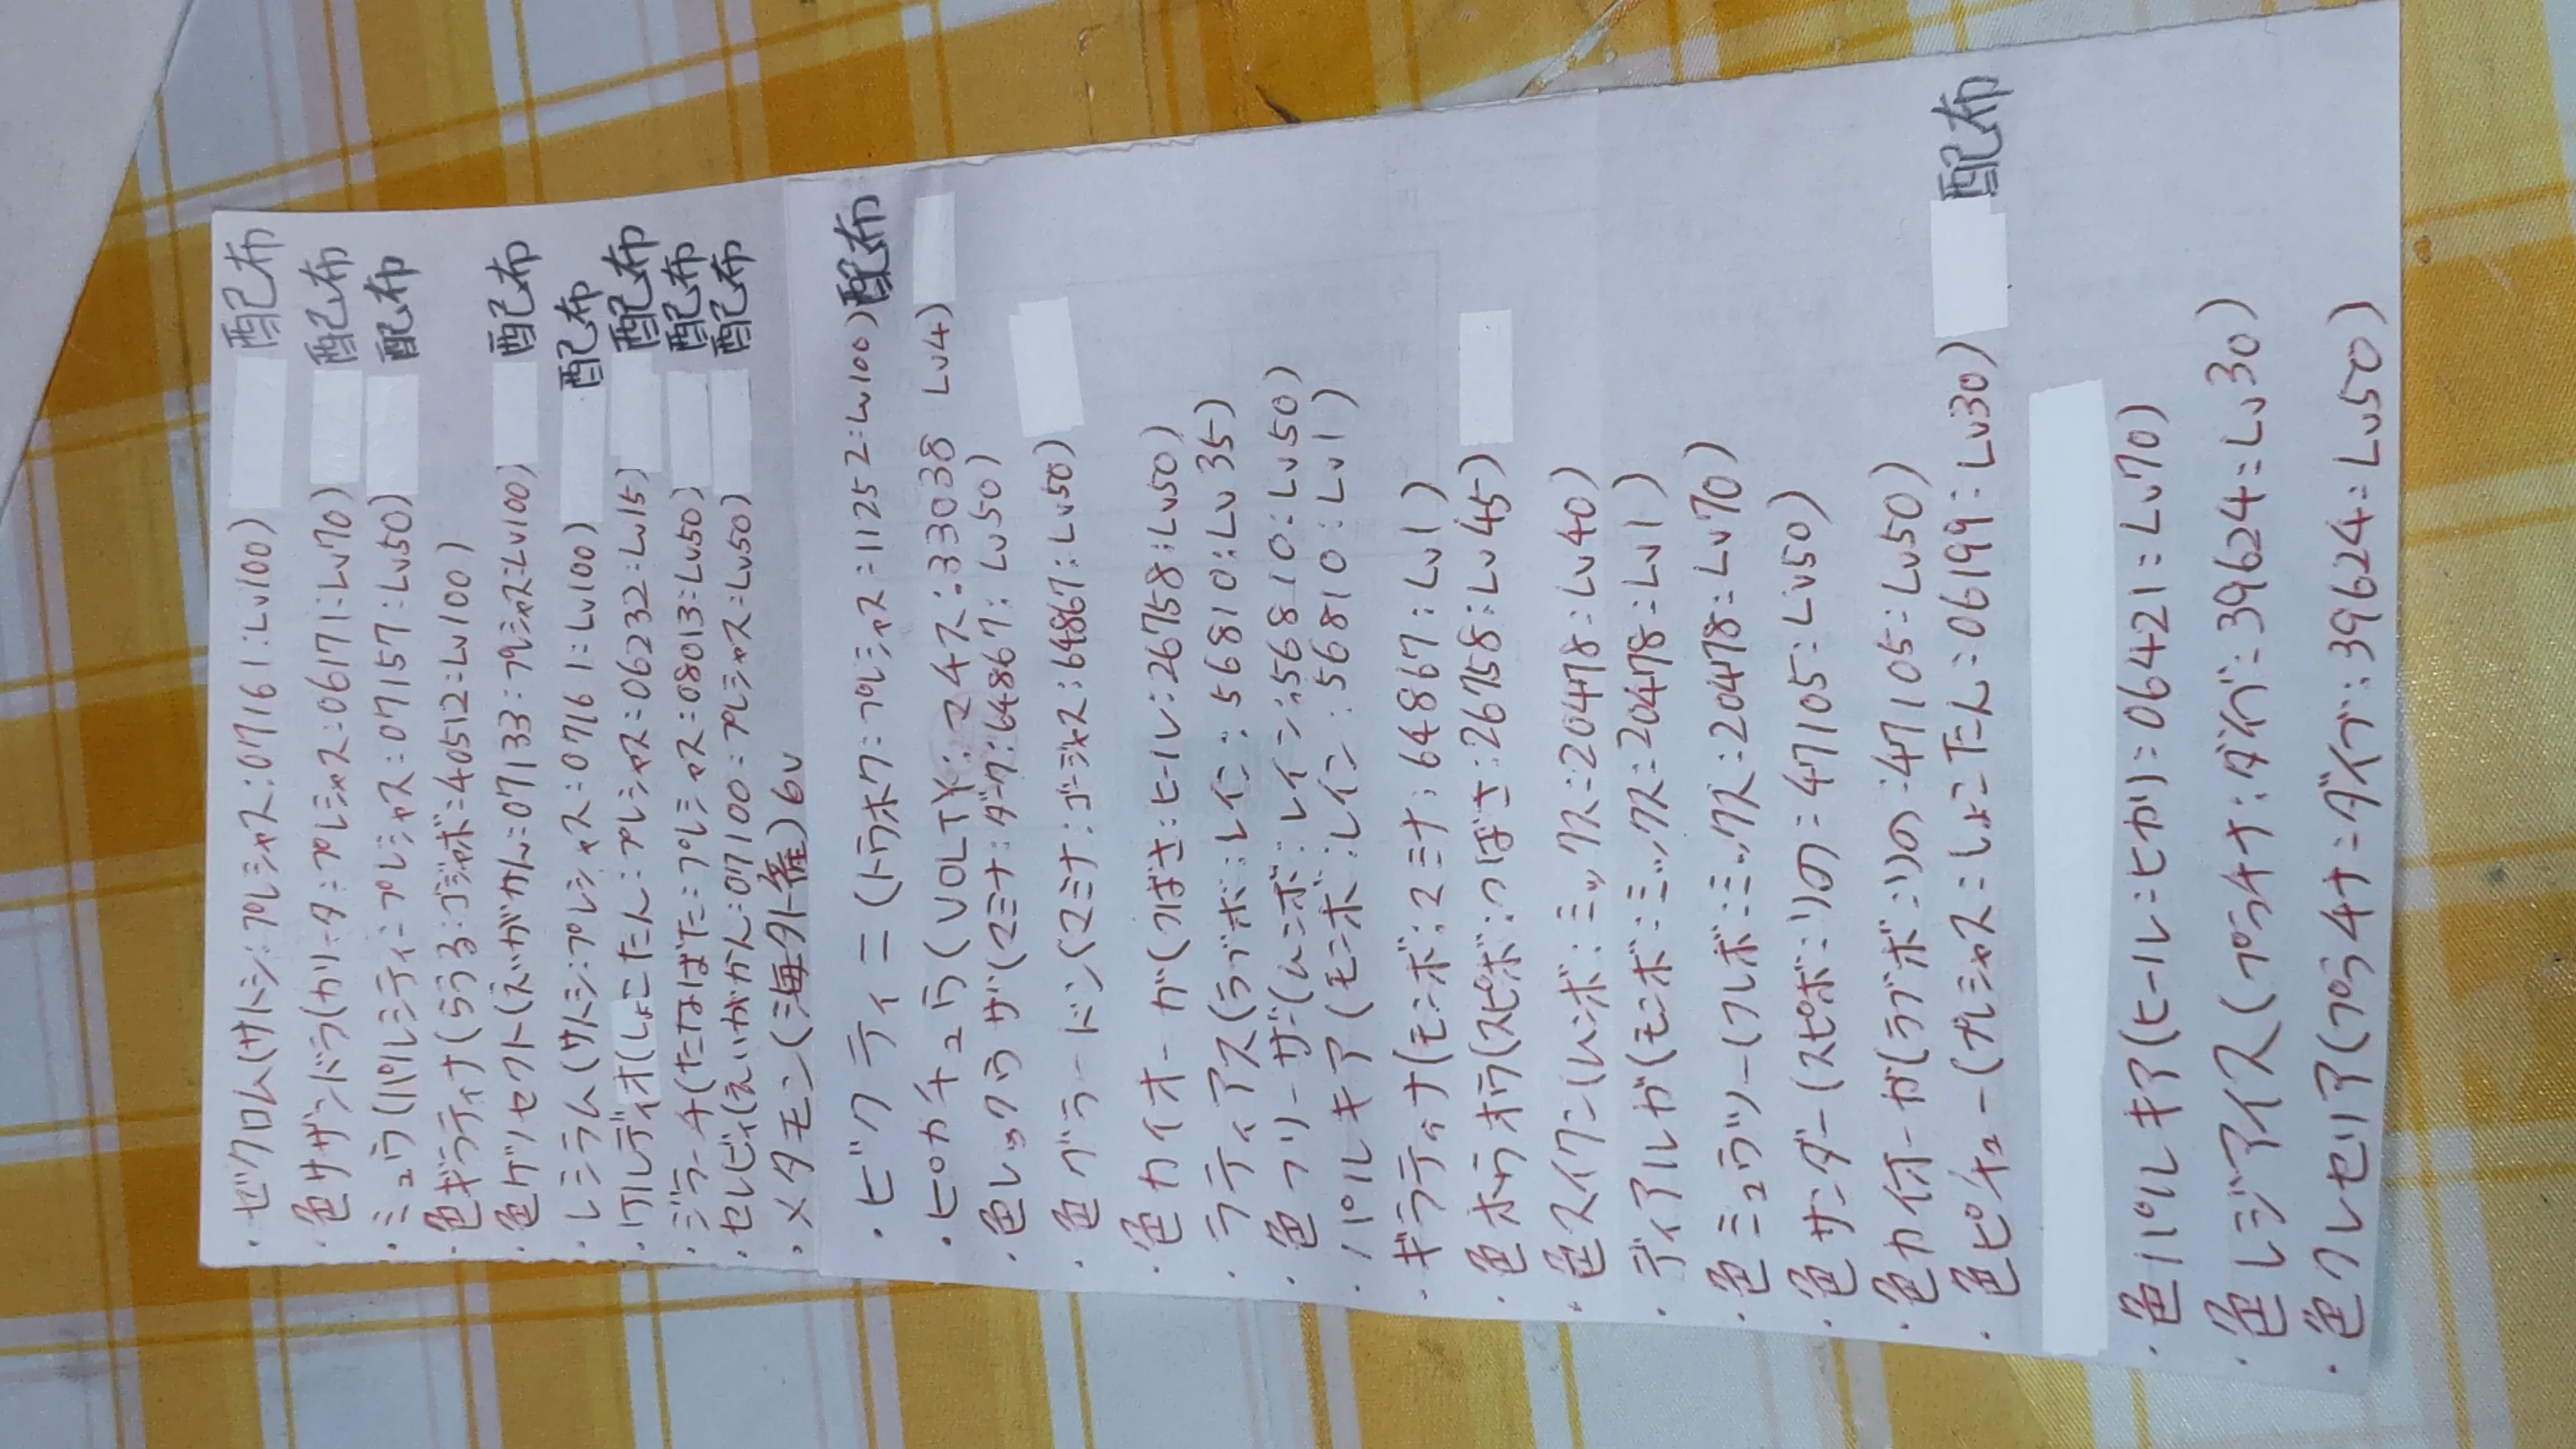 ・ゼクロム(サトシ:プレシャス:07161:Lv100) 配布
・色サザンドラ(カリータ:プレシャス:06171:Lv70) 配布
・ミュウ(ハワレシティ:プレシャス:07157:Lv50) 配布
・色ギラティナ(らうる:ゴジャボ:40512:Lv100)
・色ゲノセクト(えいがかん:07133:プレシャス:Lv100) 配布
・レシラム(サトシ:プレシャス:07161:Lv100) 配布
・ケルディオ(しょこたん:プレシャス:06232:Lv15) 配布
・ジラーチ(たなばた:プレシャス:08013:Lv50) 配布
・セレビィ(えいがかん:07100:プレシャス:Lv50) 配布
・メタモン(海外産)6V
・ビクティニ(トウホク:プレシャス:11252:Lv100) 配布
・ピカチュウ(VOLTY:マチス:33038 Lv4)
・色レックウザ(マミナ:ダーク:64867:Lv50)
・色グラードン(マミナ:ゴージャス:64867:Lv50)
・色カイオーガ(つばさ:ヒール:26758:Lv50)
・ラティアス(ラブボ:レイン:56810:Lv35)
・色フリーザー(ムンボ:レイン:56810:Lv50)
・パルキア(モンボ:レイン:56810:Lv1)
・ギラティナ(モンボ:マミナ:64867:Lv1)
・色ホウオウ(スピボ:つばさ:26758:Lv45)
・色スイクン(ムンボ:ミックス:20478:Lv40)
・ディアルガ(モンボ:ミックス:20478:Lv1)
・色ミュウツー(フレボ:ミックス:20478:Lv70)
・色サンダー(スピボ:リの:47105:Lv50)
・色カイオーガ(ラブボ:リの:47105:Lv50)
・色ピチュー(プレシャス:しょこたん:06199:Lv30) 配布
・色パルキア(ヒール:ヒカリ:06421:Lv70)
・色レジアイス(プラチナ:ダイブ:39624:Lv30)
・色クレセリア(プラチナ:ダイブ:39624:Lv50)